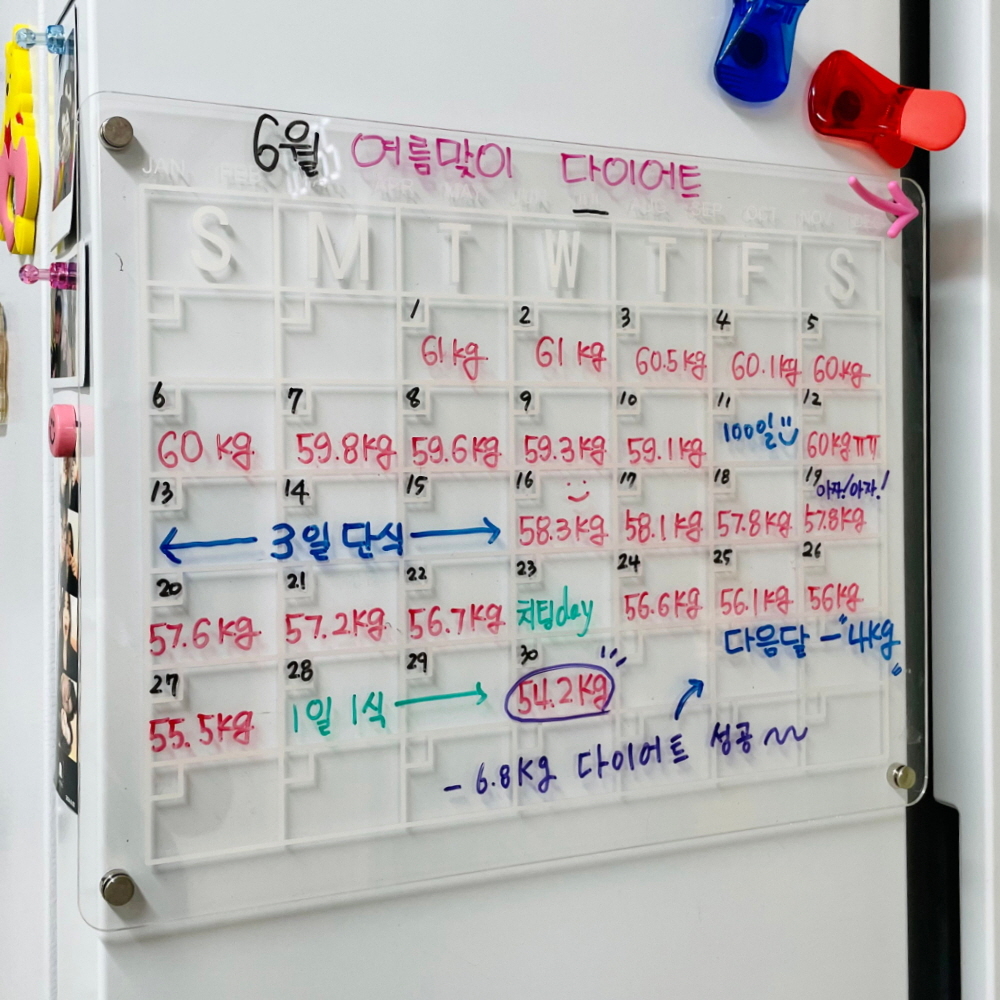 6월 여름맞이 다이어트
JAN FEB MAR APR MAY JUN JUL AUG SEP OCT NOV DEC
S M T W T F S
1 2 3 4 5
61kg 61kg 60.5kg 60.1kg 60kg
6 7 8 9 10 11 12
60kg 59.8kg 59.6kg 59.3kg 59.1kg 100일 60kgππ
13 14 15 16 17 18 19
아자!아자!
← 3일 단식 → 58.3kg 58.1kg 57.8kg 57.8kg
20 21 22 23 24 25 26
57.6kg 57.2kg 56.7kg 치팅day 56.6kg 56.1kg 56kg
다음달 -"4kg"
27 28 29 30
55.5kg 1일 1식 → 54.2kg
-6.8kg 다이어트 성공~~